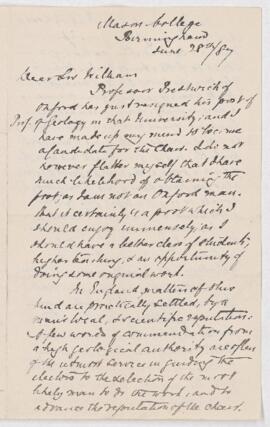 Mason College
Birmingham
June 28th/87
Dear Sir William
Professor Prestwich of
Oxford has just resigned his post of
Prof. of Geology in that University; and I
have made up my mind to become
a candidate for the Chair. I do not
however flatter myself that I have
much likelihood of obtaining the
post as I am not an Oxford man.
But it certainly is a post which I
should enjoy immensely, as I
should have a better class of students,
higher teaching, & an opportunity of
doing some original work.
In England matters of this
kind are practically settled, by a
man's local, & scientific reputation.
A few words of commendation from
a high geological authority are often
of the utmost service in guiding the
electors to the selection of the most
likely man to do the work, and to
advance the reputation of the chair.